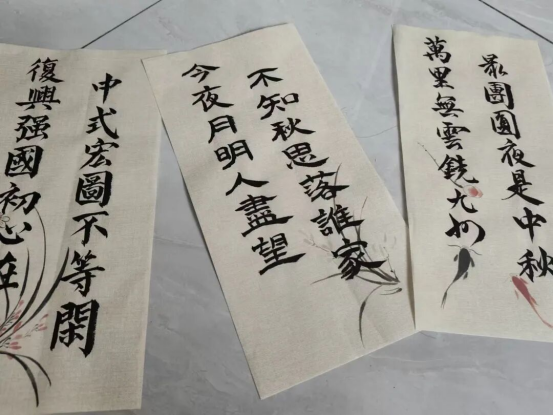 復興强國初心在
中式宏圖不等閑
今夜月明人盡望
不知秋思落誰家
萬里無雲鏡九州
最團圓夜是中秋